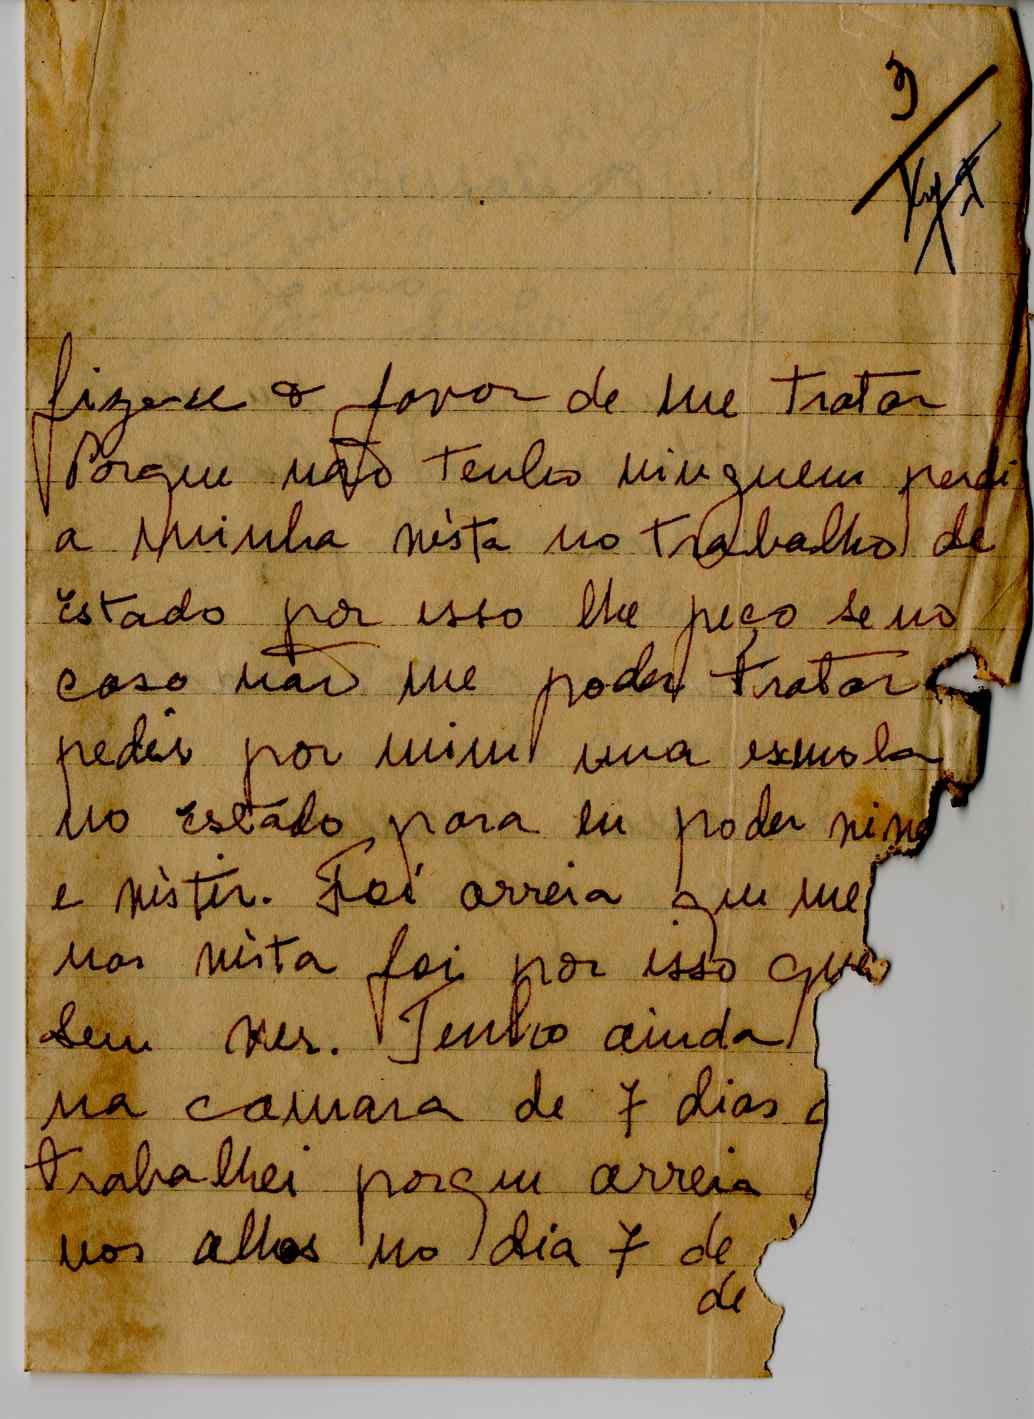 3
fizese o favor de me tratar
Porque não tenho ninguem perdi
a minha vista no trabalho de
Estado por isso lhe peço se no
caso não me poder tratar
pedir por mim uma esmola
no Estado para eu poder vive
e vistir. Foi arreia que me
nas vista foi por isso que
sem ver. Tenho ainda
na camara de 7 dias
trabalhei porque arreia
nos olhos no dia 7 de
de